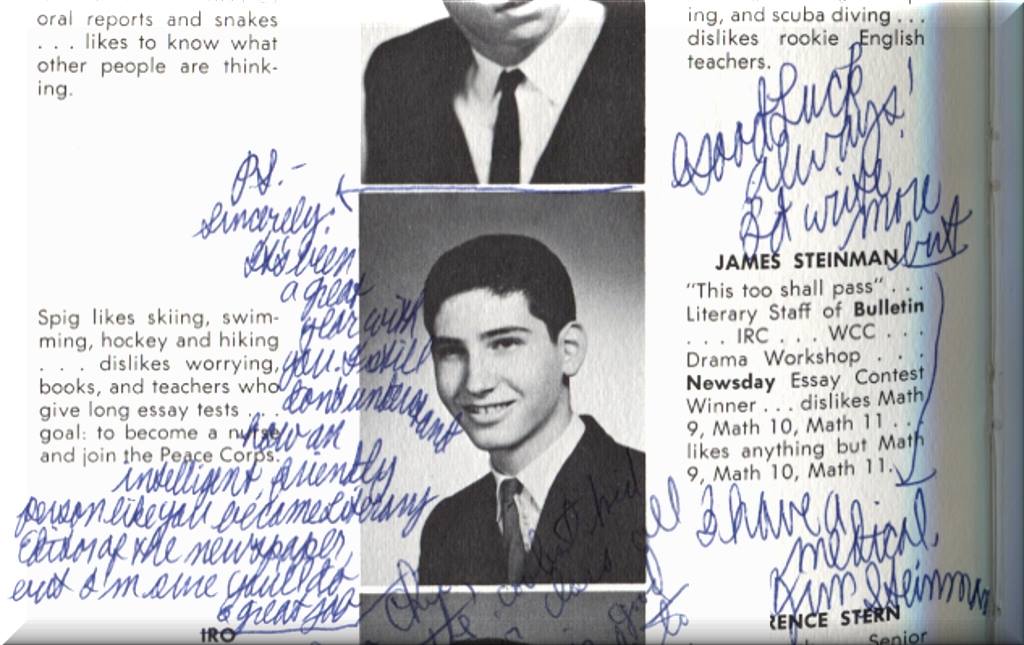 oral reports and snakes
. . . likes to know what
other people are think-
ing.
P.S. -
Sincerely.
It's been
a great
year with
you. I still
don't understand
how an
intelligent, friendly
person like you became Literary
Editor of the newspaper,
but I'm sure you'll do
a great job
Spig likes skiing, swim-
ming, hockey and hiking
. . . dislikes worrying,
books, and teachers who
give long essay tests . . .
goal: to become a nurse
and join the Peace Corps.
IRO
ing, and scuba diving . . .
dislikes rookie English
teachers.
Good Luck
always!
I'd write
more
but
JAMES STEINMAN
"This too shall pass" . . .
Literary Staff of Bulletin
. . . IRC . . . WCC . . .
Drama Workshop . . .
Newsday Essay Contest
Winner . . . dislikes Math
9, Math 10, Math 11 . . .
likes anything but Math
9, Math 10, Math 11.
I have a
medical.
Jim Steinman
RENCE STERN
Senior